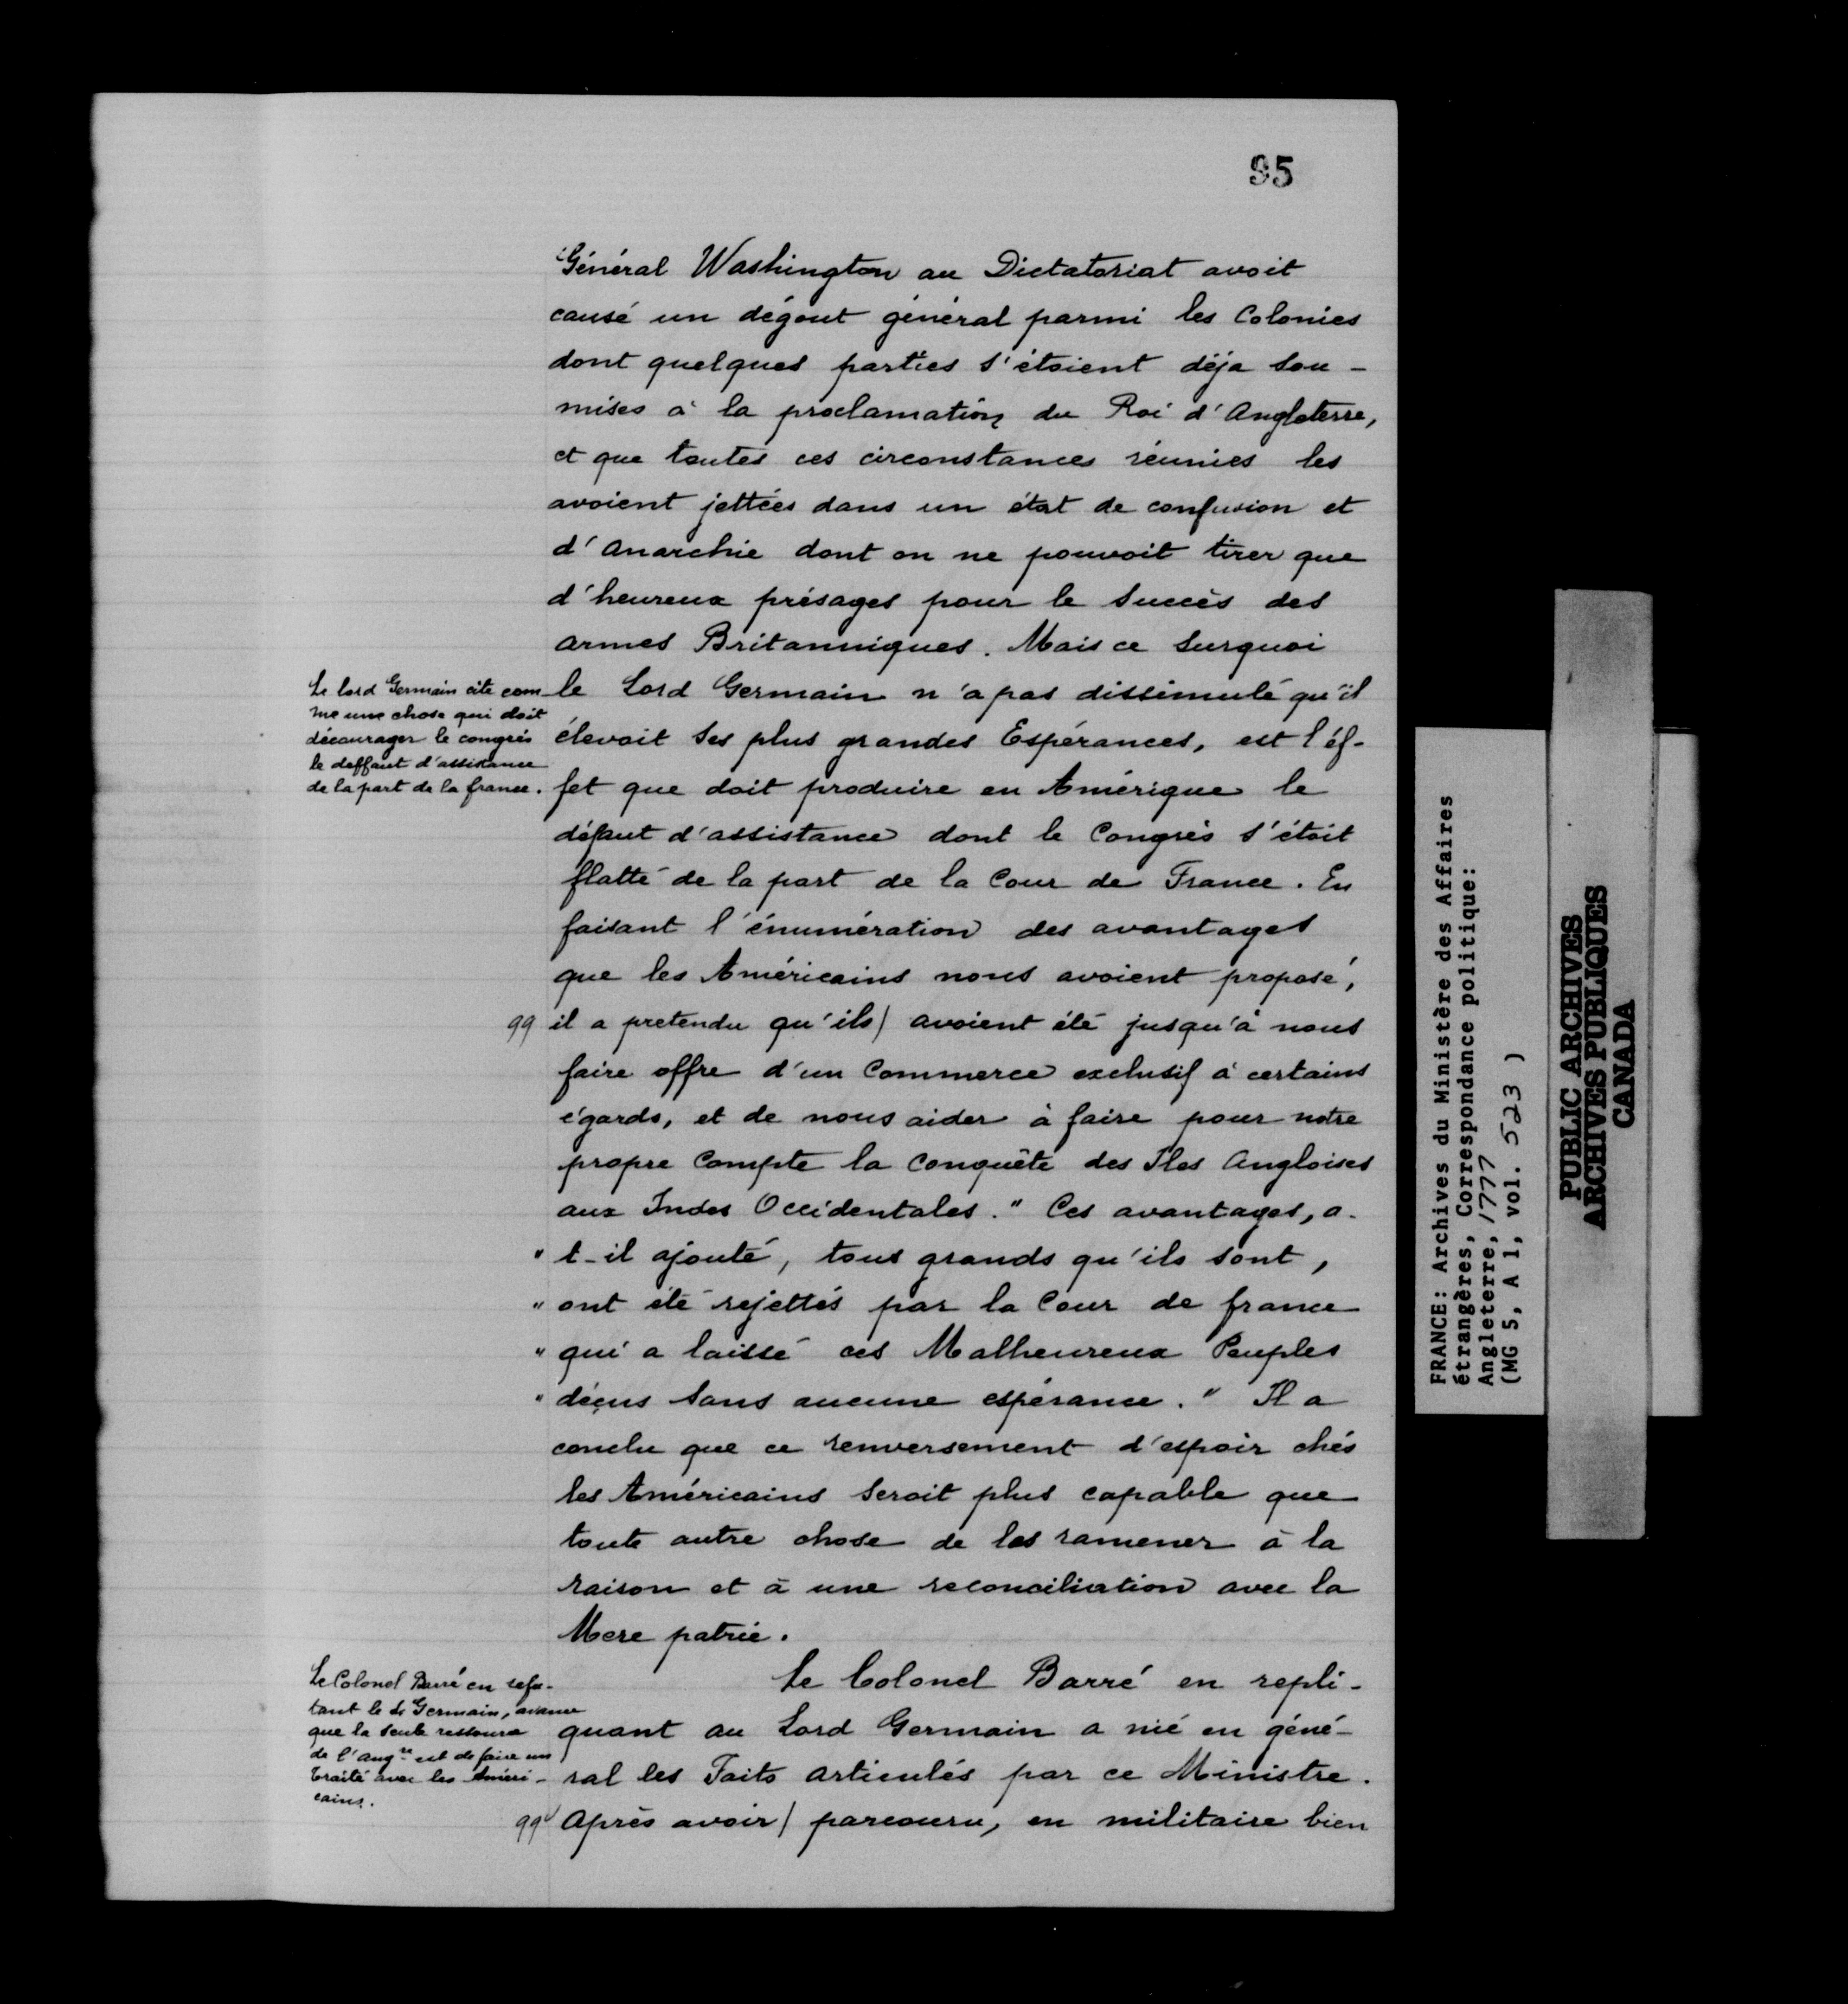 95
Général Washington au Dictatoriat avoit
causé un dégout général parmi les Colonies
dont quelques parties s'étoient déja sou-
mises à la proclamation du Roi d'Angleterre,
et que toutes ces circonstances réunies les
avoient jettées dans un état de confusion et
d'Anarchie dont on ne pouvoit tirer que
d'heureux présages pour le Succès des
armes Britanniques. Mais ce surquoi
le Lord Germain n'a pas dissimulé qu'il
élevoit ses plus grandes Espérances, est l'éf-
fet que doit produire en Amérique le
défaut d'assistance dont le Congrès s'étoit
flatté de la part de la Cour de France. En
faisant l'énumération des avantages
que les Américains nous avoient proposé,
99 il a pretendu qu'ils/ avoient été jusqu'à nous
faire offre d'un Commerce exclusif à certains
égards, et de nous aider à faire pour notre
propre Compte la Conquête des Iles Angloises
aux Indes Occidentales. " Ces avantages, a-
" t-il ajouté, tous grands qu'ils sont,
" ont été rejettés par la Cour de france
" qui a laissé ces Malheureux Peuples
" déçus sans aucune espérance. " Il a
conclu que ce renversement d'espoir chés
les Américains seroit plus capable que
toute autre chose de les ramener à la
raison et à une reconciliation avec la
Mere patrie.
Le Colonel Barré en repli-
quant au Lord Germain a nié en géné-
ral les Faits articulés par ce Ministre.
99v Après avoir/ parcouru, en militaire bien
Le lord Germain cite com-
me une chose qui doit
décourager le congrés
le deffaut d'assistance
de la part de la france.
Le Colonel Barré en refu-
tant le Ld Germain, avance
que la seule ressource
de l'Angre est de faire un
traité avec les Améri-
cains.
FRANCE: Archives du Ministère des Affaires
étrangères, Correspondance politique:
Angleterre, 1777
(MG 5, A 1, vol. 523 )
PUBLIC ARCHIVES
ARCHIVES PUBLIQUES
CANADA